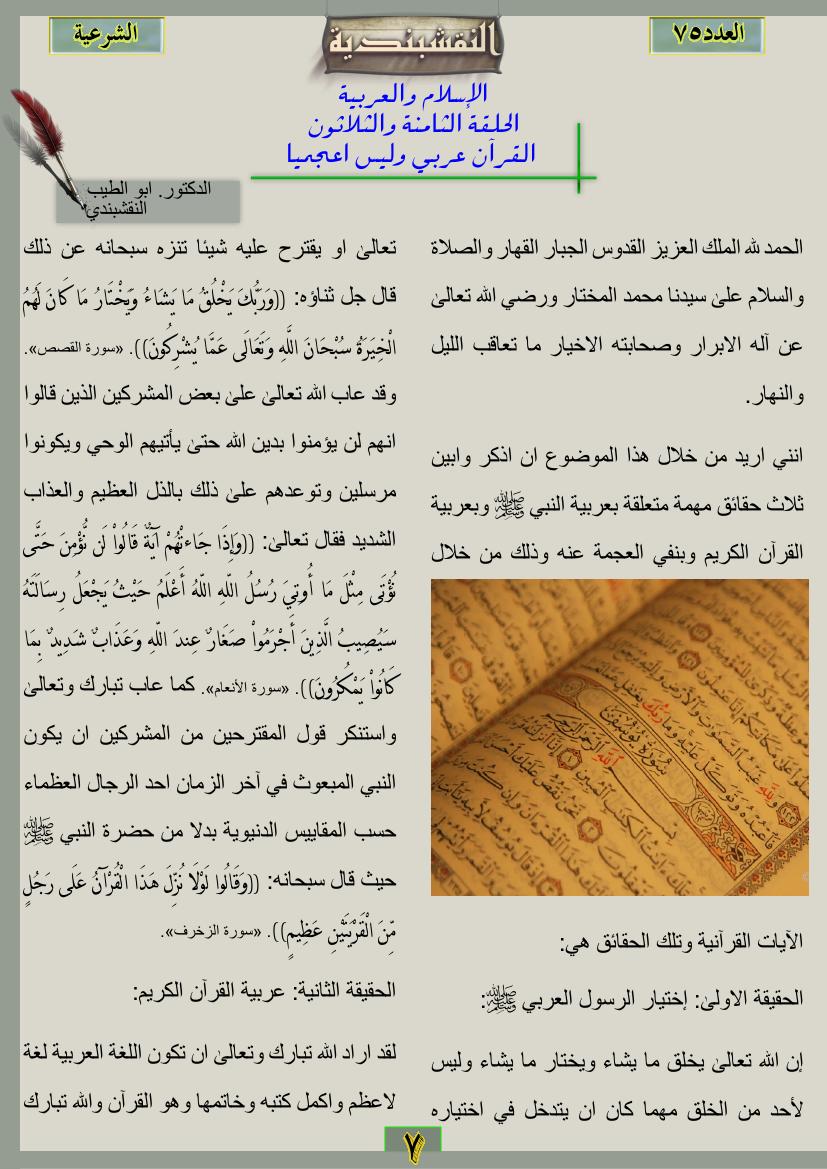 العدد٧٥
النقشبندية
الشرعية
الإسلام والعربية
الحلقة الثامنة والثلاثون
القرآن عربي وليس اعجميا
الدكتور. ابو الطيب
النقشبندي
الحمد لله الملك العزيز القدوس الجبار القهار والصلاة
والسلام علىٰ سيدنا محمد المختار ورضي الله تعالىٰ
عن آله الابرار وصحابته الاخيار ما تعاقب الليل
والنهار.
انني اريد من خلال هذا الموضوع ان اذكر وابين
ثلاث حقائق مهمة متعلقة بعربية النبي ﷺ وبعربية
القرآن الكريم وبنفي العجمة عنه وذلك من خلال
الآيات القرآنية وتلك الحقائق هي:
الحقيقة الاولىٰ: إختيار الرسول العربي ﷺ:
إن الله تعالىٰ يخلق ما يشاء ويختار ما يشاء وليس
لأحد من الخلق مهما كان ان يتدخل في اختياره
تعالىٰ او يقترح عليه شيئا تنزه سبحانه عن ذلك
قال جل ثناؤه: ((وَرَبُّكَ يَخْلُقُ مَا يَشَاءُ وَيَخْتَارُ مَا كَانَ لَهُمُ
الْخِيَرَةُ سُبْحَانَ اللَّهِ وَتَعَالَى عَمَّا يُشْرِكُونَ)). «سورة القصص».
وقد عاب الله تعالىٰ علىٰ بعض المشركين الذين قالوا
انهم لن يؤمنوا بدين الله حتىٰ يأتيهم الوحي ويكونوا
مرسلين وتوعدهم علىٰ ذلك بالذل العظيم والعذاب
الشديد فقال تعالىٰ: ((وَإِذَا جَاءتْهُمْ آيَةٌ قَالُواْ لَن نُّؤْمِنَ حَتَّى
نُؤْتَى مِثْلَ مَا أُوتِيَ رُسُلُ اللّهِ اللّهُ أَعْلَمُ حَيْثُ يَجْعَلُ رِسَالَتَهُ
سَيُصِيبُ الَّذِينَ أَجْرَمُواْ صَغَارٌ عِندَ اللّهِ وَعَذَابٌ شَدِيدٌ بِمَا
كَانُواْ يَمْكُرُونَ)). «سورة الأنعام». كما عاب تبارك وتعالىٰ
واستنكر قول المقترحين من المشركين ان يكون
النبي المبعوث في آخر الزمان احد الرجال العظماء
حسب المقاييس الدنيوية بدلا من حضرة النبي ﷺ
حيث قال سبحانه: ((وَقَالُوا لَوْلَا نُزِّلَ هَذَا الْقُرْآنُ عَلَى رَجُلٍ
مِّنَ الْقَرْيَتَيْنِ عَظِيمٍ)). «سورة الزخرف».
الحقيقة الثانية: عربية القرآن الكريم:
لقد اراد الله تبارك وتعالىٰ ان تكون اللغة العربية لغة
لاعظم واكمل كتبه وخاتمها وهو القرآن والله تبارك
٧